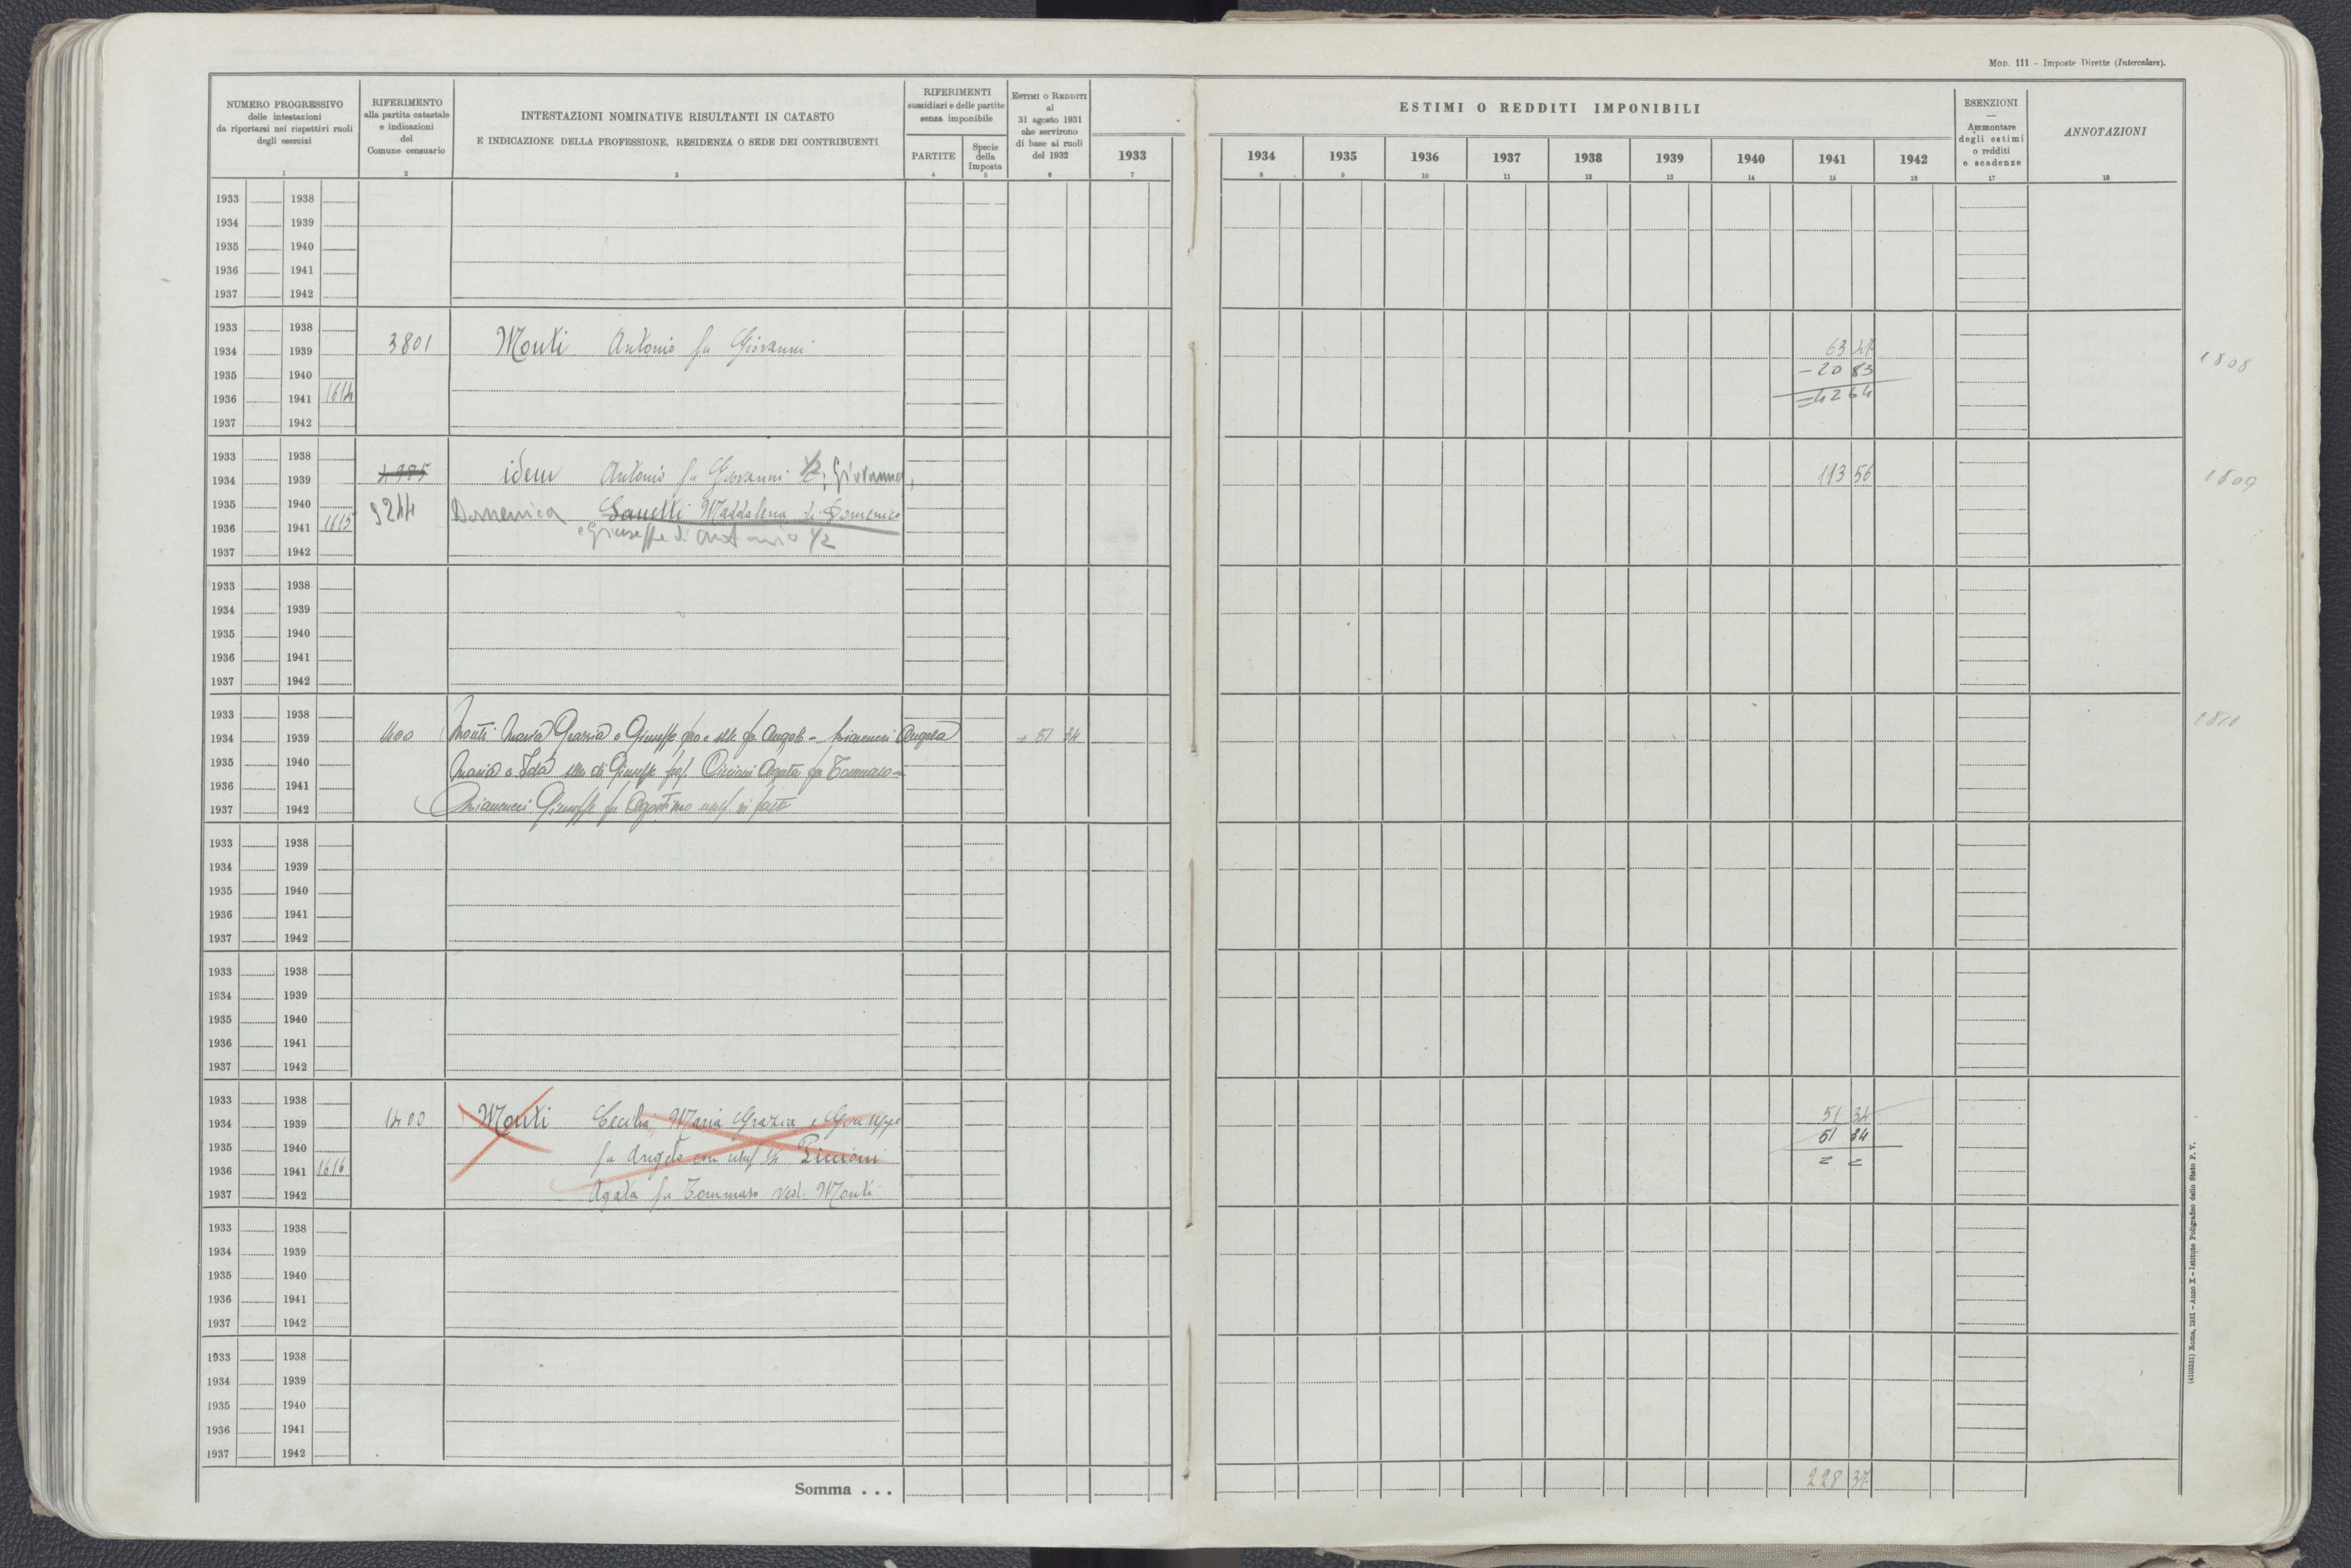 Mod. 111 - Imposte Dirette (Intercalare).
NUMERO PROGRESSIVO
delle intestazioni
da riportarsi nei rispettivi ruoli
degli esercizi
1
RIFERIMENTO
alla partita catastale
e indicazioni
del
Comune censuario
2
INTESTAZIONI NOMINATIVE RISULTANTI IN CATASTO
E INDICAZIONE DELLA PROFESSIONE, RESIDENZA O SEDE DEI CONTRIBUENTI
3
RIFERIMENTI
sussidiari e delle partite
senza imponibile
PARTITE
4
Specie
della
Imposta
5
ESTIMI O REDDITI
al
31 agosto 1931
che servirono
di base ai ruoli
del 1932
6
1933
7
ESTIMI O REDDITI IMPONIBILI
1934 1935 1936 1937 1938 1939 1940 1941 1942
8 9 10 11 12 13 14 15 16
ESENZIONI
—
Ammontare
degli estimi
o redditi
e scadenze
17
ANNOTAZIONI
18
1933 1938
1934 1939
1935 1940
1936 1941
1937 1942
1933 1938
1934 1939 3801 Monti Antonio fu Giovanni 63 47 1808
1935 1940 - 20 83
1936 1941 1614 = 42 64
1937 1942
1933 1938
1934 1939 4985 idem Antonio fu Giovanni 1/2; Giovanna, 113 56 1809
1935 1940 9244 Domenica Sanelli Maddalena di Domenico
1936 1941 1615 e Giuseppe di Antonio 1/2
1937 1942
1933 1938
1934 1939
1935 1940
1936 1941
1937 1942
1933 1938
1934 1939 1400 Monti Maria Grazia e Giuseppe fu Angelo - Angela + 51 34 1810
1935 1940 Maria e Ida di Giuseppe Agata fu Tommaso
1936 1941
1937 1942 Giuseppe fu Agostino
1933 1938
1934 1939
1935 1940
1936 1941
1937 1942
1933 1938
1934 1939
1935 1940
1936 1941
1937 1942
1933 1938
1934 1939 1400 Monti Cecilia, Maria Grazia e Giuseppe 51 34
1935 1940 fu Angelo con usuf Piccioni 51 34
1936 1941 1616 = =
1937 1942 Agata fu Tommaso ved. Monti
1933 1938
1934 1939
1935 1940
1936 1941
1937 1942
1933 1938
1934 1939
1935 1940
1936 1941
1937 1942
Somma . . . 228 37
(4103351) Roma, 1931 - Anno X - Istituto Poligrafico dello Stato P. V.